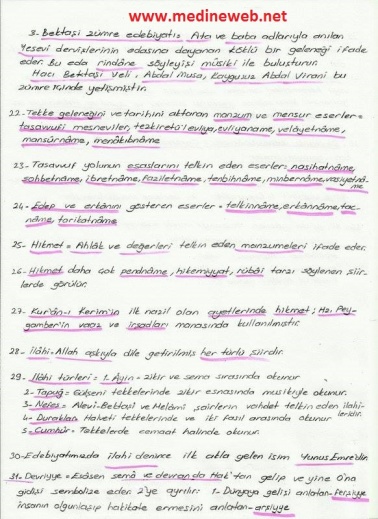 www.medineweb.net
3. Bektaşi zümre edebiyatı= Ata ve baba adlarıyla anılan
Yesevi dervişlerinin edasına dayanan köklü bir geleneği ifade
eder. Bu eda rindâne söyleyişi mûsiki ile buluşturur.
Hacı Bektaşı Veli, Abdal Musa, Kaygusuz Abdal Virani bu
zümre içinde yetişmiştir.
22- Tekke geleneğini ve tarihini aktaran manzum ve mensur eserler=
tasavvufi mesneviler, tezkiretü'l evliya, evliyaname, velâyetnâme,
mansûrnâme, menâkıbnâme
23- Tasavvuf yolunun esaslarını telkin eden eserler= nasihatnâme,
sohbetnâme, ibretnâme, faziletnâme, tenbihnâme, minbernâme, vasiyetnâ-
me
24- Edep ve erkânını gösteren eserler = telkinnâme, erkânnâme, tac-
nâme, tarikatnâme
25- Hikmet= Ahlâk ve değerleri telkin eden manzumeleri ifade eder.
26- Hikmet daha çok pendnâme, hikemiyyat, rübâi tarzı söylenen şiir-
lerde görülür.
27- Kur'ân-ı Kerim'in ilk nazil olan ayetlerinde hikmet; Hz. Pey-
gamber'in vaaz ve irşadları manasında kullanılmıştır.
28- İlâhi= Allah aşkıyla dile getirilmiş her türlü şiirdir.
29- İlahi türleri= 1- Âyin- zikir ve sema sırasında okunur
2- Tapuğ= Gülşeni tekkelerinde zikir esnasında musikiyle okunur.
3- Nefes= Alevi-Bektaşi ve Melâmi şairlerin vahdet telkin eden ilahi-
leridir.
4- Duraklar= Halveti tekkelerinde ve iki fasıl arasında okunur
5- Cumhûr= Tekkelerde cemaat halinde okunur.
30- Edebiyatımızda ilahi denince ilk akla gelen isim Yunus Emre'dir.
31- Devriyye= Esâsen semâ ve devranda Hak'tan gelip ve yine O'na
gidişi sembolize eder. 2'ye ayrılır: 1- Dünyaya gelişi anlatan- ferşiyye
insanın olgunlaşıp hakikate ermesini anlatan- arşiyye